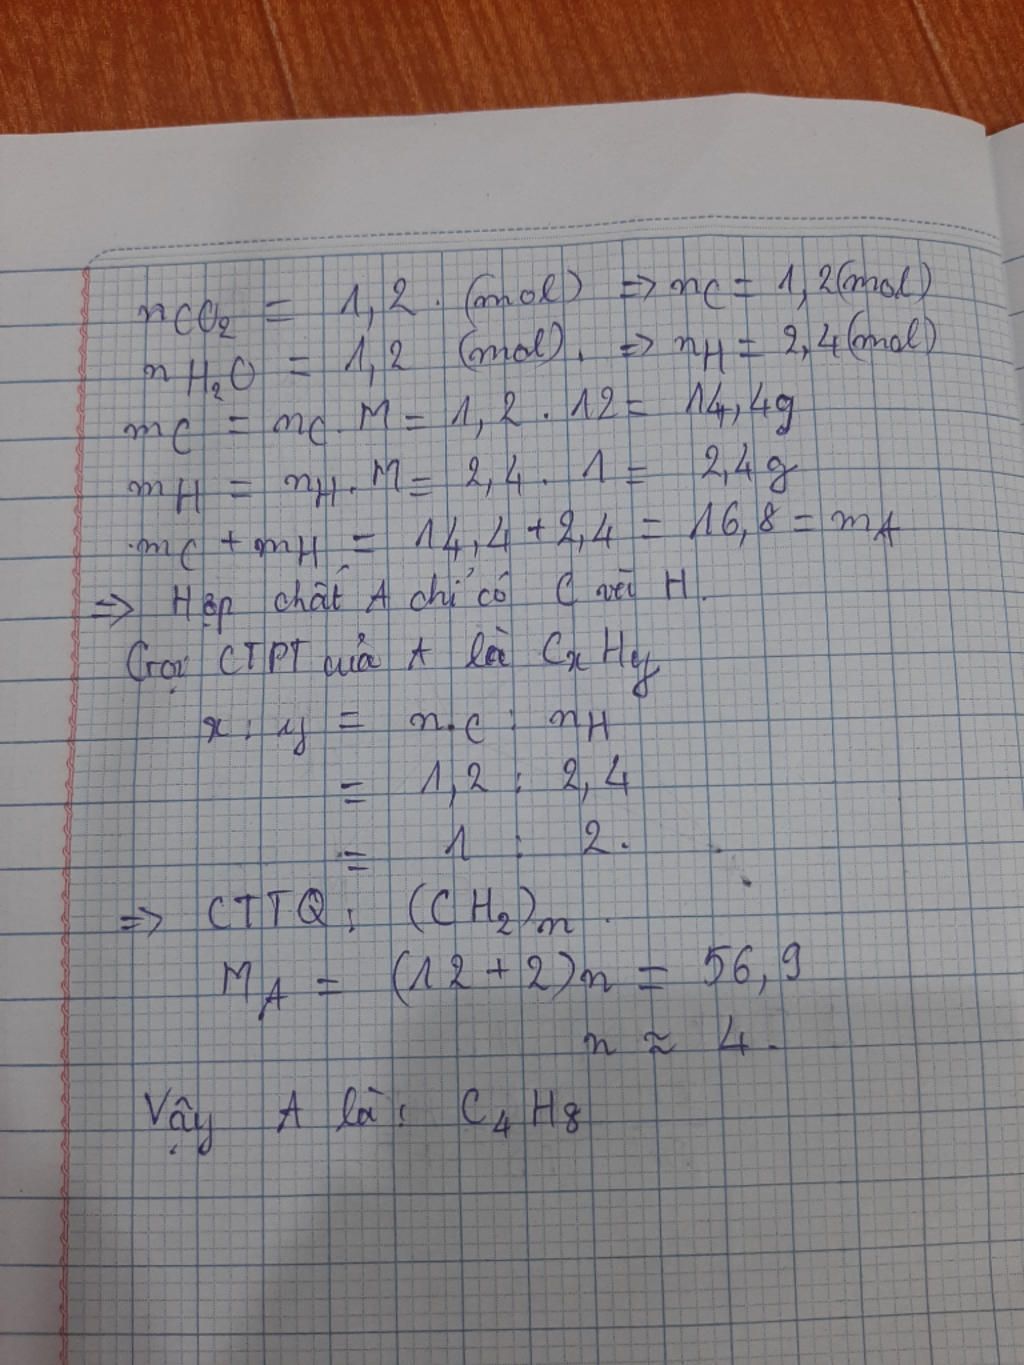 nCO₂ = 1,2. (mol) => nC = 1,2(mol)
nH₂O = 1,2 (mol). => nH = 2,4(mol)
mC = nC. M = 1,2 . 12 = 14,4g
mH = nH. M = 2,4. 1 = 2,4g
mC + mH = 14,4 + 2,4 = 16,8 = mA
=> Hợp chất A chỉ có C với H.
Gọi CTPT của A là CxHy
x : y = nC : nH
= 1,2 : 2,4
= 1 : 2.
=> CTTQ: (CH₂)n.
MA = (12 + 2)n = 56,9
n ≈ 4.
Vậy A là: C₄H₈